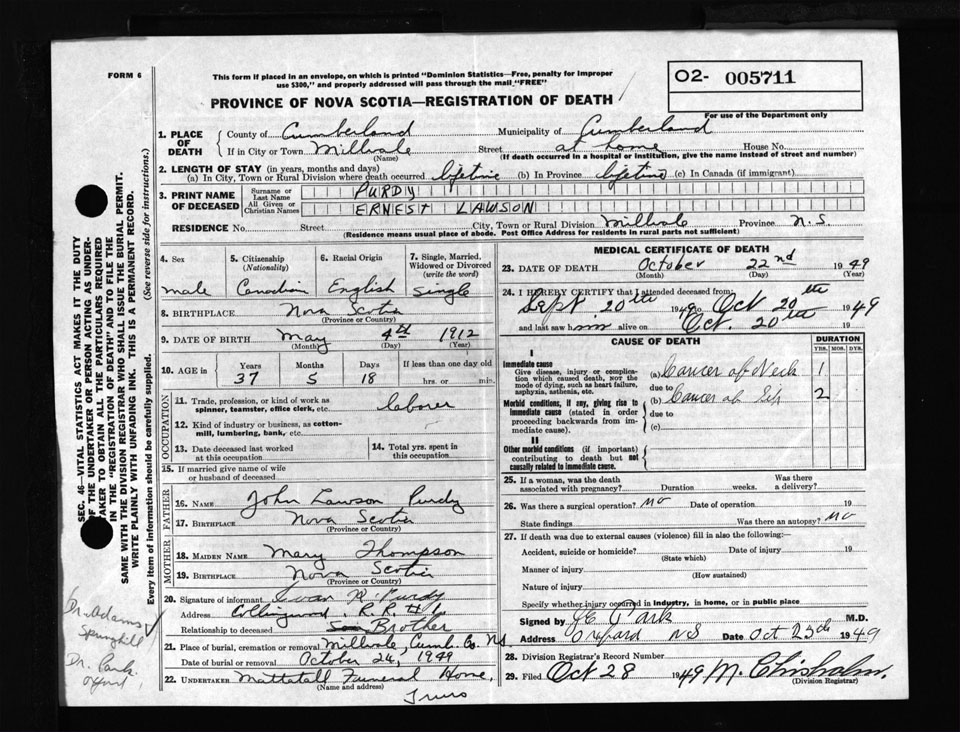 FORM 6
This form if placed in an envelope, on which is printed "Dominion Statistics—Free, penalty for improper
use $300," and properly addressed will pass through the mail "FREE"
PROVINCE OF NOVA SCOTIA—REGISTRATION OF DEATH
O2- 005711
For use of the Department only
SEC. 46—VITAL STATISTICS ACT MAKES IT THE DUTY
OF THE UNDERTAKER OR PERSON ACTING AS UNDER-
TAKER TO OBTAIN ALL THE PARTICULARS REQUIRED
IN THE "REGISTRATION OF DEATH" AND TO FILE THE
SAME WITH THE DIVISION REGISTRAR WHO SHALL ISSUE THE BURIAL PERMIT.
WRITE PLAINLY WITH UNFADING INK. THIS IS A PERMANENT RECORD.
Every item of information should be carefully supplied. (See reverse side for instructions.)
1. PLACE OF DEATH County of Cumberland Municipality of Cumberland
If in City or Town Millvale Street at home House No.
(Name) (If death occurred in a hospital or institution, give the name instead of street and number)
2. LENGTH OF STAY (in years, months and days)
(a) In City, Town or Rural Division where death occurred lifetime (b) In Province lifetime (c) In Canada (if immigrant)
3. PRINT NAME OF DECEASED Surname or Last Name PURDY
All Given or Christian Names ERNEST LAWSON
RESIDENCE No. Street City, Town or Rural Division Millvale Province N.S.
(Residence means usual place of abode. Post Office Address for residents in rural parts not sufficient)
4. Sex 5. Citizenship (Nationality) 6. Racial Origin 7. Single, Married, Widowed or Divorced (write the word)
male Canadian English Single
8. BIRTHPLACE Nova Scotia
(Province or Country)
9. DATE OF BIRTH May 4th 1912
(Month) (Day) (Year)
10. AGE in Years Months Days If less than one day old
37 5 18 hrs. or min.
OCCUPATION
11. Trade, profession, or kind of work as
spinner, teamster, office clerk, etc. laborer
12. Kind of industry or business, as cotton-
mill, lumbering, bank, etc.
13. Date deceased last worked
at this occupation
14. Total yrs. spent in
this occupation
15. If married give name of wife
or husband of deceased
FATHER
16. NAME John Lawson Purdy
17. BIRTHPLACE Nova Scotia
(Province or Country)
MOTHER
18. MAIDEN NAME Mary Thompson
19. BIRTHPLACE Nova Scotia
(Province or Country)
20. Signature of informant Purdy
Address Collingwood R.R. # 1
Relationship to deceased Brother
21. Place of burial, cremation or removal Millvale, Cumb. Co. NS
Date of burial or removal October 24, 1949
22. UNDERTAKER Mattatall Funeral Home,
(Name and address)
Truro
MEDICAL CERTIFICATE OF DEATH
23. DATE OF DEATH October 22nd 1949
(Month) (Day) (Year)
24. I HEREBY CERTIFY that I attended deceased from:
Sept 20th 1949 to Oct 20th 1949
and last saw him alive on Oct. 20th 19
CAUSE OF DEATH DURATION
YRS. MOS. DYS.
I
Immediate cause
Give disease, injury or complica-
tion which caused death, NOT the
mode of dying, such as heart failure,
asphyxia, asthenia, etc.
(a) Cancer of Neck 1
due to
Morbid conditions, if any, giving rise to
immediate cause (stated in order
proceeding backwards from im-
mediate cause).
(b) Cancer of Lip 2
due to
(c)
II
Other morbid conditions (if important)
contributing to death but not
causally related to immediate cause.
25. If a woman, was the death
associated with pregnancy? Duration weeks. Was there
a delivery?
26. Was there a surgical operation? no Date of operation 19
State findings Was there an autopsy? no
27. If death was due to external causes (violence) fill in also the following:—
Accident, suicide or homicide? Date of injury 19
(State which)
Manner of injury
(How sustained)
Nature of injury
Specify whether injury occurred in industry, in home, or in public place
Signed by M.D.
Address Oxford NS Date Oct 25th 1949
28. Division Registrar's Record Number
29. Filed Oct 28 1949 M. Chisholm.
(Division Registrar)
Dr. Adams
Springhill
Dr. Park
Oxford